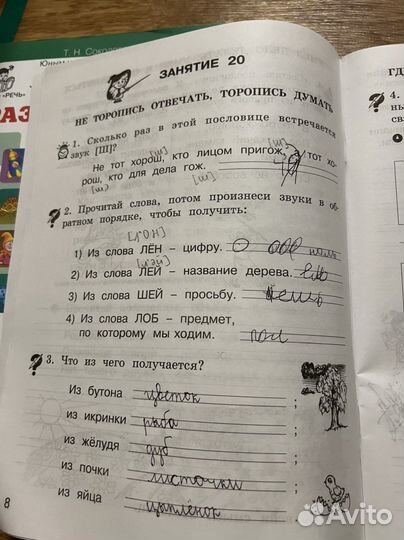 Т. Н. Соколова
«РЕЧЬ»
ЗАНЯТИЕ 20
НЕ ТОРОПИСЬ ОТВЕЧАТЬ, ТОРОПИСЬ ДУМАТЬ
1. Сколько раз в этой пословице встречается
звук [Ш]?
[ш] [ш]
Не тот хорош, кто лицом пригож, а тот хо-
рош, кто для дела гож.
[ш] [ш]
2. Прочитай слова, потом произнеси звуки в об-
ратном порядке, чтобы получить:
1) Из слова ЛЁН – цифру.
2) Из слова ЛЕЙ – название дерева.
3) Из слова ШЕЙ – просьбу.
4) Из слова ЛОБ – предмет,
по которому мы ходим. пол
3. Что из чего получается?
Из бутона цветок ;
из икринки рыба ;
из жёлудя дуб ;
из почки листочки ;
из яйца цыплёнок .
8
ГД
4.
Avito